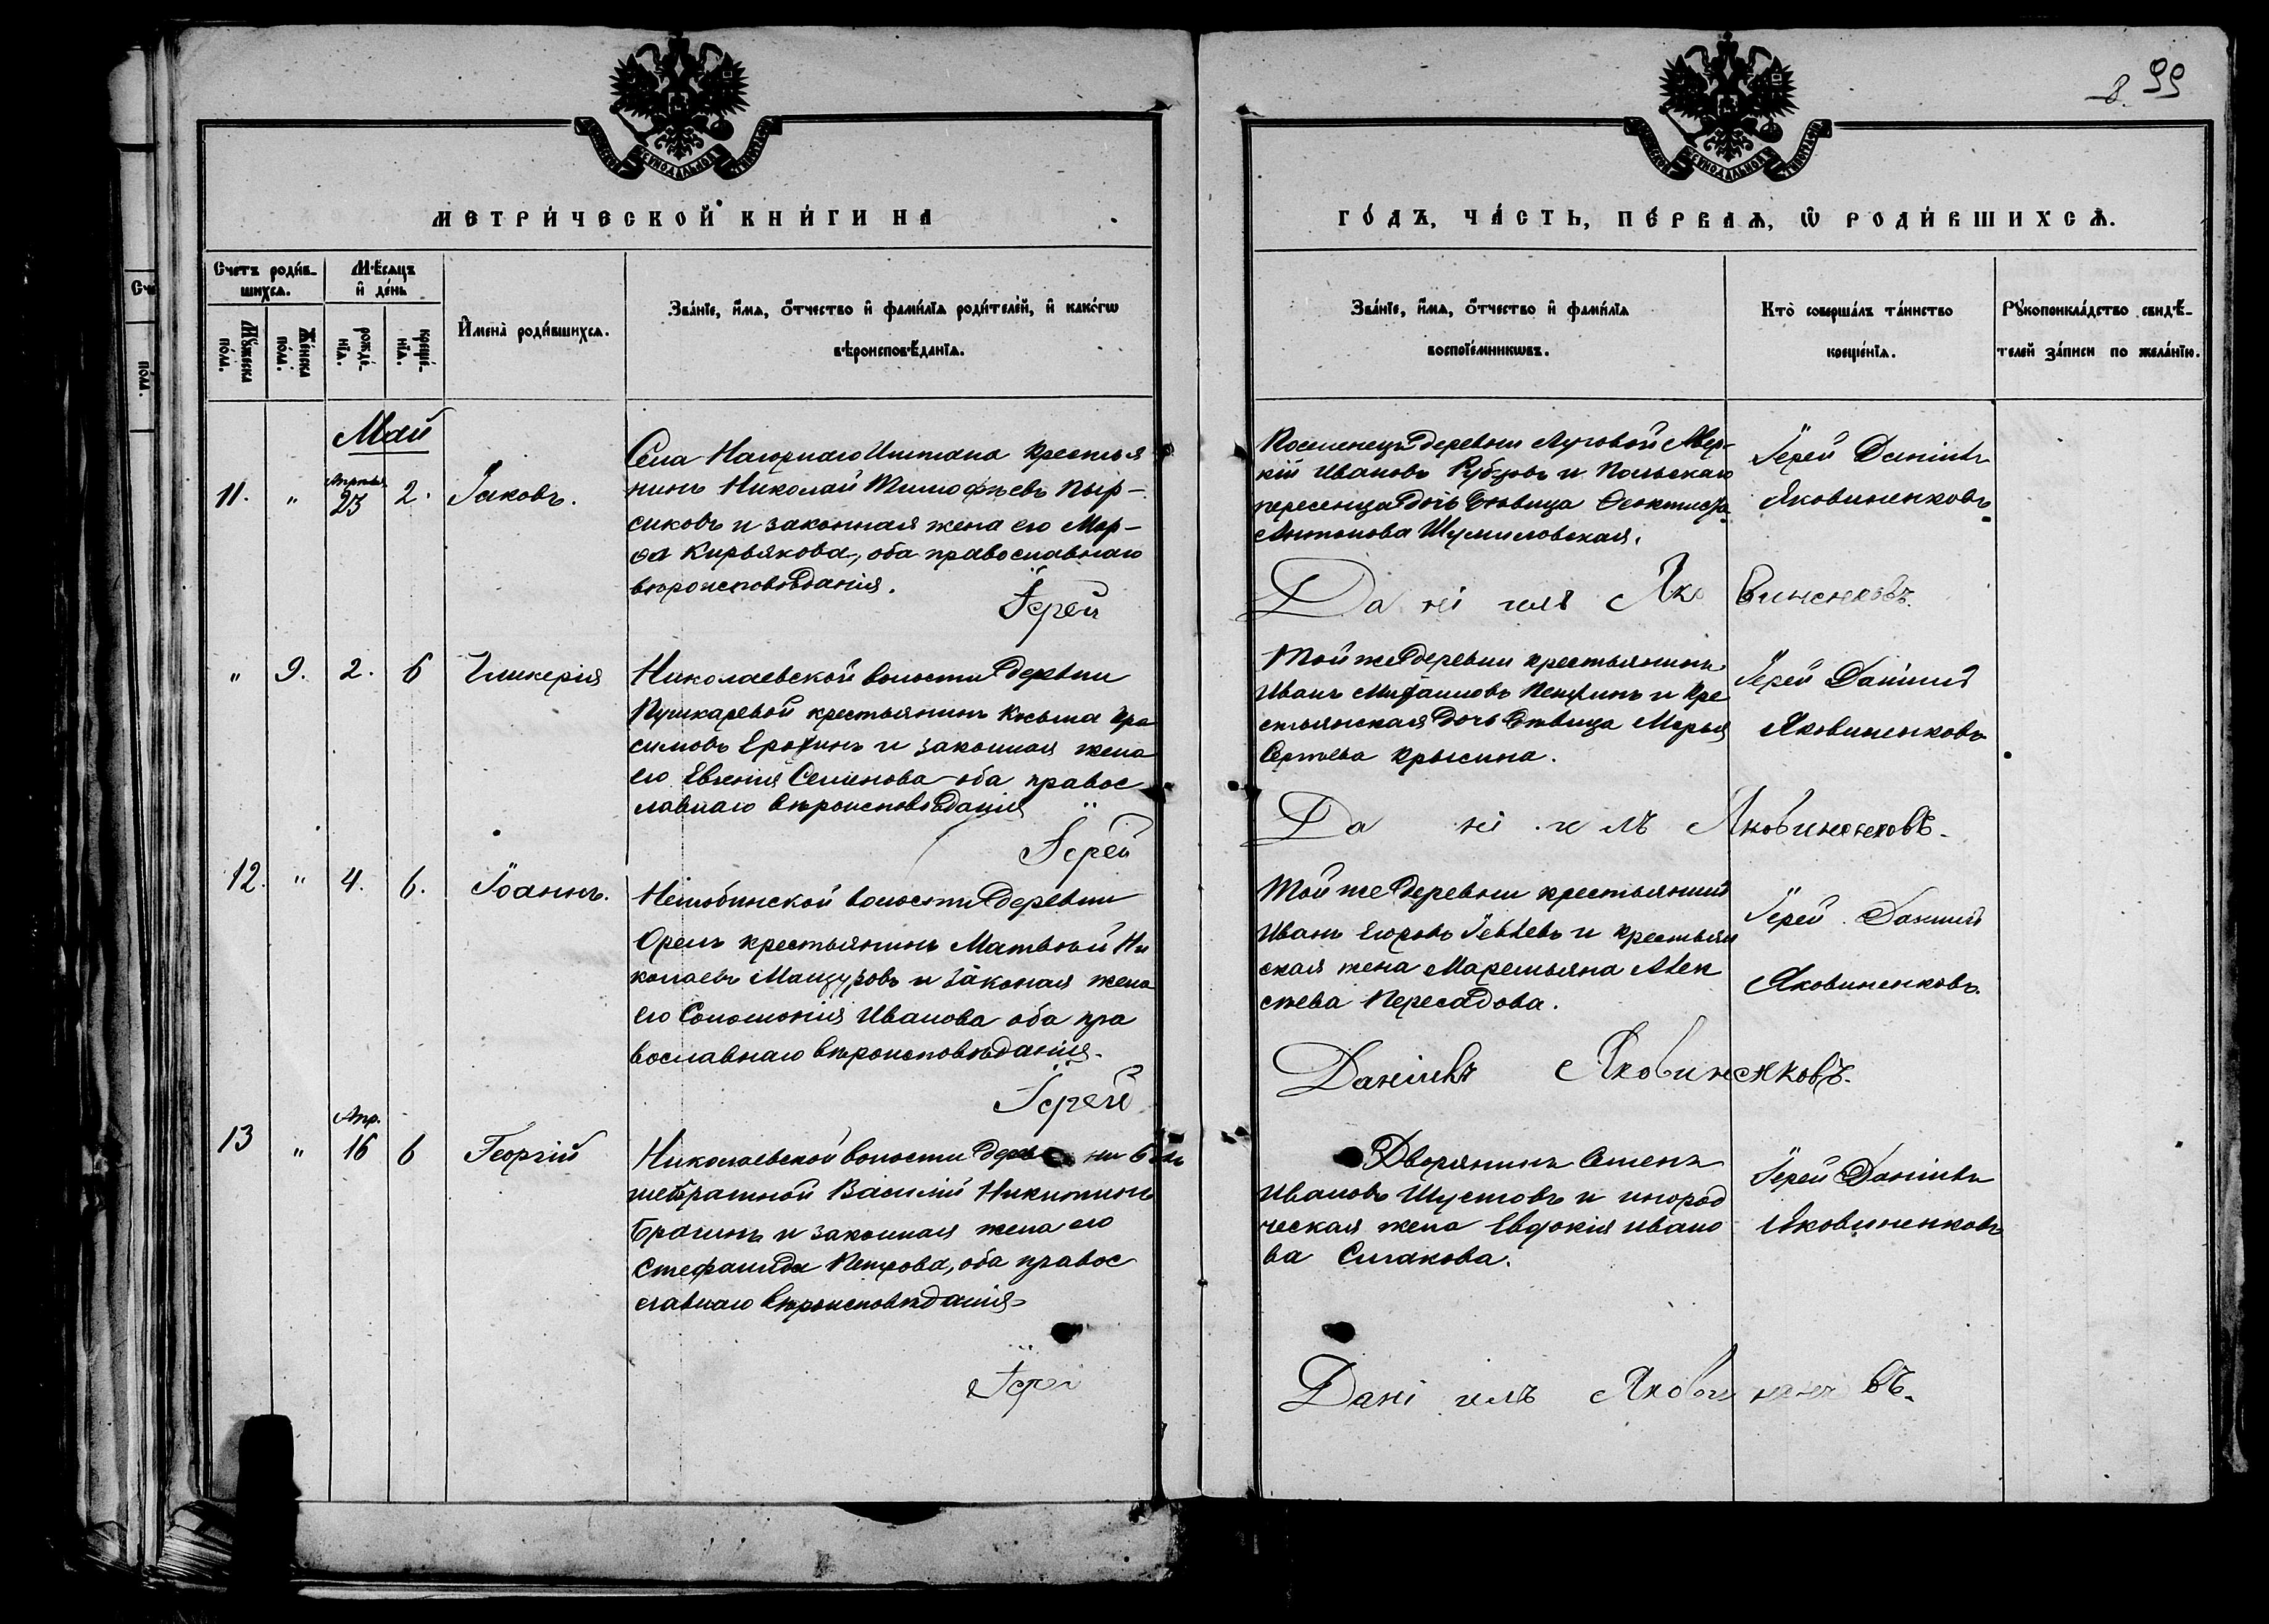 8. 99
МЕТРИЧЕСКОЙ КНИГИ НА
ГОДЪ, ЧАСТЬ, ПЕРВАЯ, Ѡ РОДИВШИХСЯ.
Счетъ родив-
шихся.
Мѣсяцъ
и день
Мужеска
пола.
Женска
пола.
рожде-
нїя.
креще-
нїя.
Имена родившихся.
Званїе, имя, отчество и фамилїя родителей, и какогѡ
вѣроисповѣданїя.
Званїе, имя, отчество и фамилїя
воспрїемникѡвъ.
Кто совершалъ таинство
крещенїя.
Рукоприкладство свидѣ-
телей записи по желанїю.
Май
11. " Апрѣля 23 2. Іаковъ.
Села Нагорнаго Иштана крестья
нинъ Николай Тимофѣевъ Пыр-
сиковъ и законная жена его Мар-
ѳа Кирьякова, оба православнаго
вѣроисповѣданія.
Поселенецъ деревни Луговой Авер-
кій Ивановъ Рубцовъ и Польскаго
пересенца дочь дѣвица Ѳеоктиста
Антонова Шумиловская.
Іерей Даніилъ
Яковиненковъ
Іерей Даніилъ Яковиненковъ.
" 9. 2. 6 Гликерія
Николаевской волости деревни
Пушкаревой крестьянинъ Косьма Гра
симовъ Ерохинъ и законная жена
его Евгенія Семенова оба правос
лавнаго вѣроисповѣданія
Той же деревни крестьянинъ
Иванъ Михаиловъ и кре
стьянская дочь дѣвица Марья
Сергѣева Крысина.
Іерей Даніилъ
Яковиненковъ
Іерей Даніилъ Яковиненковъ.
12. " 4. 6. Іоаннъ.
Нелюбинской волости деревни
Орелъ крестьянинъ Матвѣй Ни
колаевъ и законая жена
его Соломонія Иванова оба пра
вославнаго вѣроисповѣданія.
Той же деревни крестьянинъ
Иванъ Егоровъ Іевлевъ и крестьян
ская жена Маремьяна Алек
сѣева Пересадова.
Іерей Даніилъ
Яковиненковъ.
Іерей Даніилъ Яковиненковъ.
13 " Апр. 16 6 Георгій
Николаевской волости деревни
Василій Никитинъ
Брагинъ и законная жена его
Стефанида Петрова, оба правос
славнаго вѣроисповѣданія
Дворянинъ Степанъ
Ивановъ Шустовъ и инород
ческая жена Евдокія Ивано
ва Силакова.
Іерей Даніилъ
Яковиненковъ
Іерей Даніилъ Яковиненковъ.